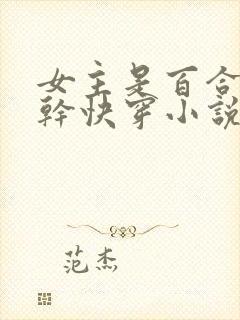 女主是百合
幹快穿小說
范杰